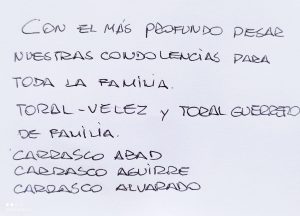 CON EL MÁS PROFUNDO PESAR
NUESTRAS CONDOLENCIAS PARA
TODA LA FAMILIA.
TORAL-VELEZ Y TORAL GUERRERO
DE FAMILIA.
CARRASCO ABAD
CARRASCO AGUIRRE
CARRASCO ALVARADO